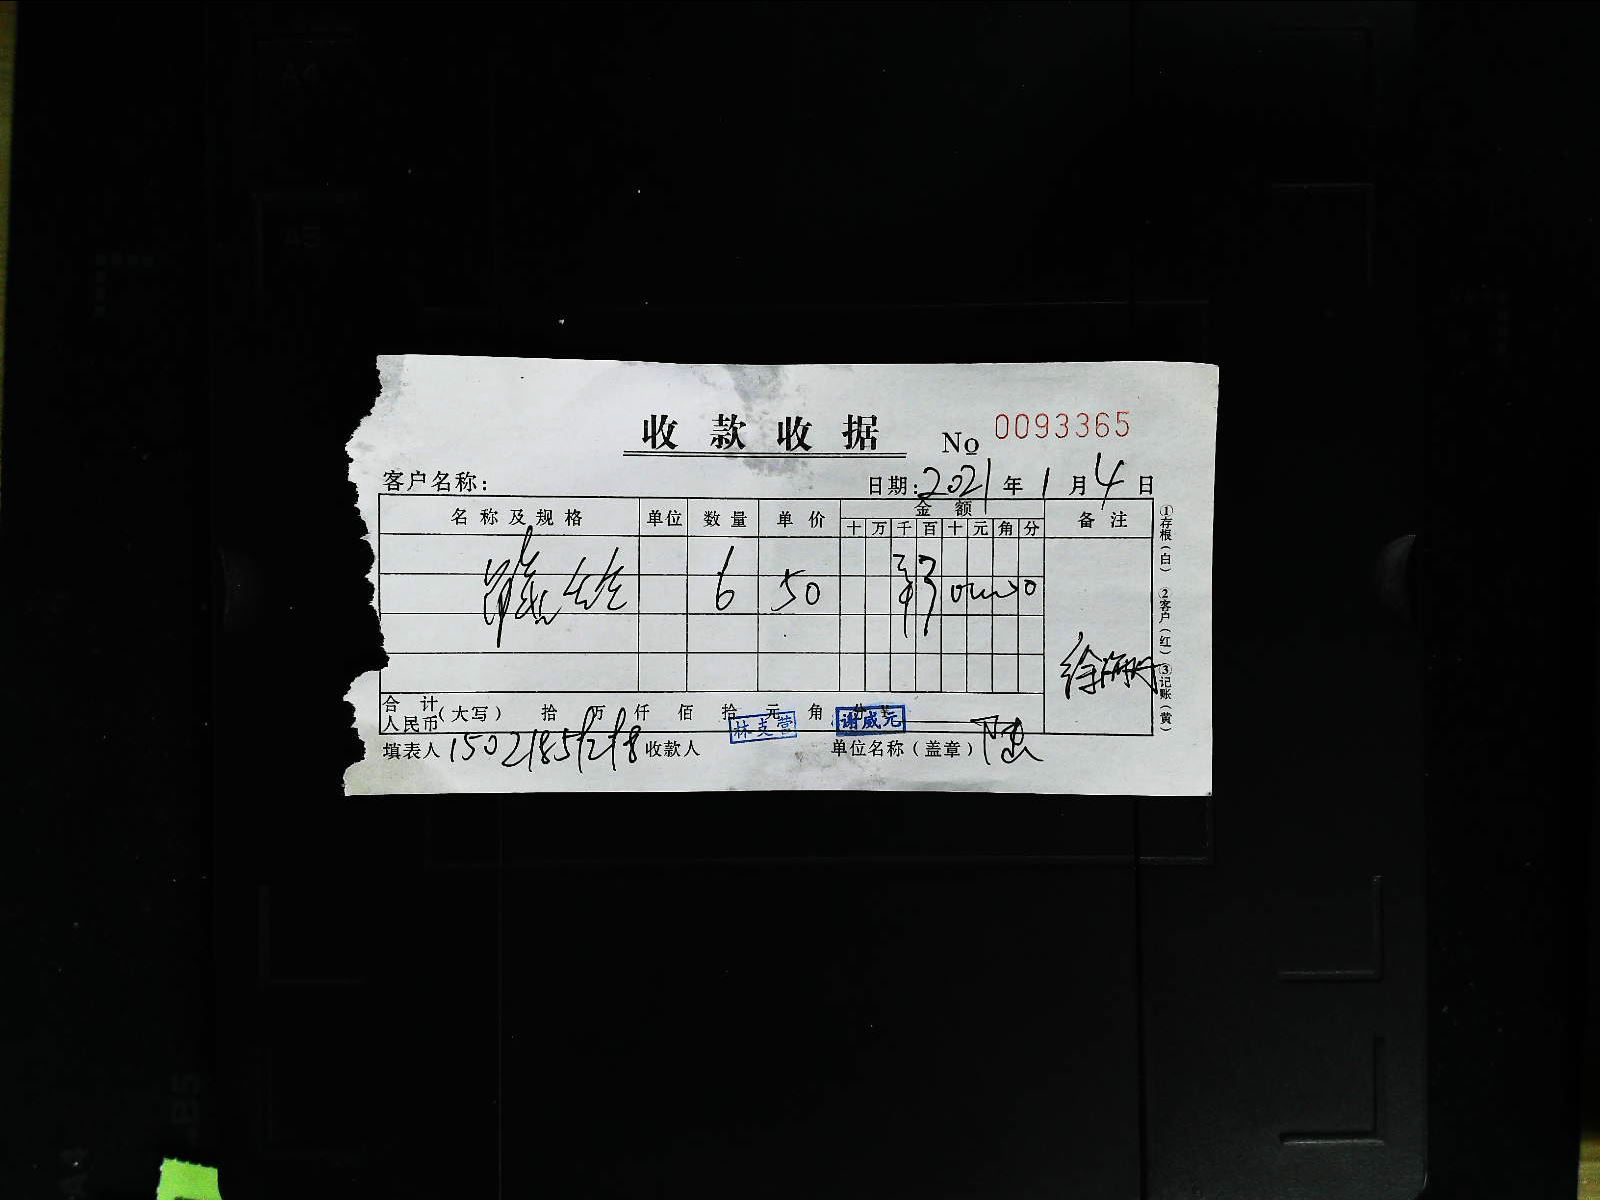 收款收据 No 0093365
客户名称: 日期: 2021 年 1 月 4 日
名称及规格 单位 数量 单价 金额 备注
十 万 千 百 十 元 角 分
6 50
徐海
合计 人民币 (大写) 拾 万 仟 佰 拾 元 角 分 ¥
填表人 15021851218 收款人 林支营 谢威元 单位名称(盖章)
①存根(白) ②客户(红) ③记账(黄)
A4
A5
B5
A4